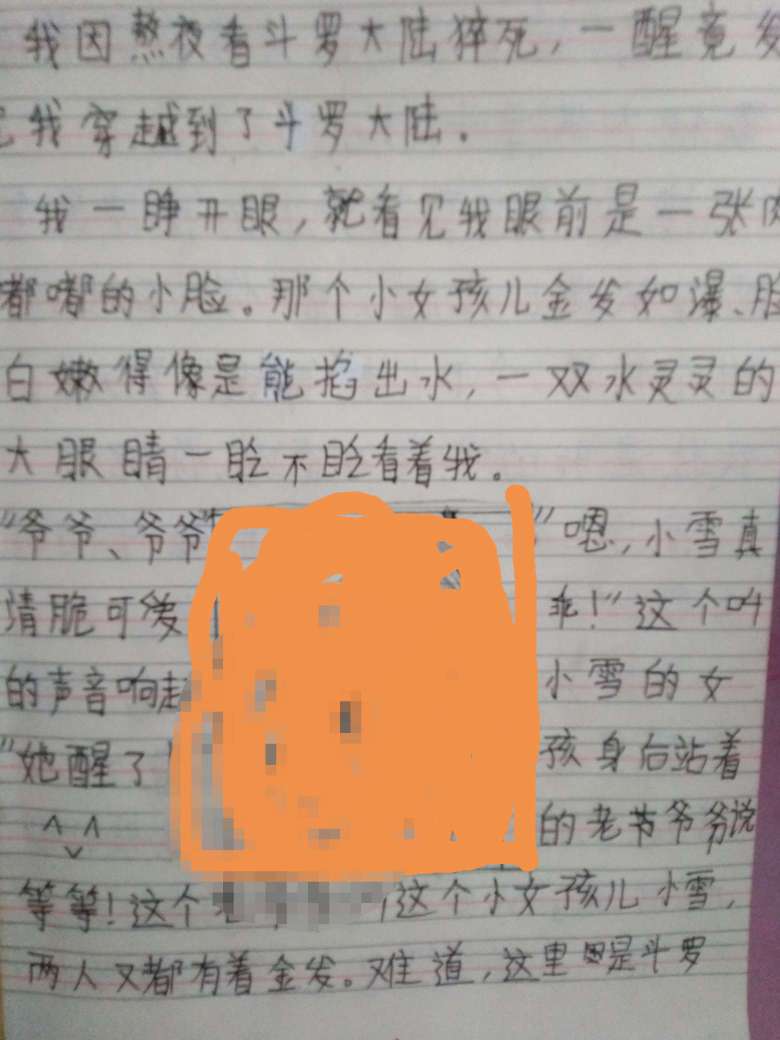 我因熬夜看斗罗大陆猝死,一醒竟发
我穿越到了斗罗大陆.
我一睁开眼,就看见我眼前是一张肉
嘟嘟的小脸。那个小女孩儿金发如瀑、脸
白嫩得像是能掐出水,一双水灵灵的
大眼睛一眨不眨看着我。
“爷爷、爷爷 ”嗯,小雪真
清脆可爱 乖!”这个叫
的声音响起 小雪的女
“她醒了 孩身后站着
^ ^ 的老爷爷说
等等!这个 这个小女孩儿小雪,
两人又都有着金发。难道,这里是斗罗